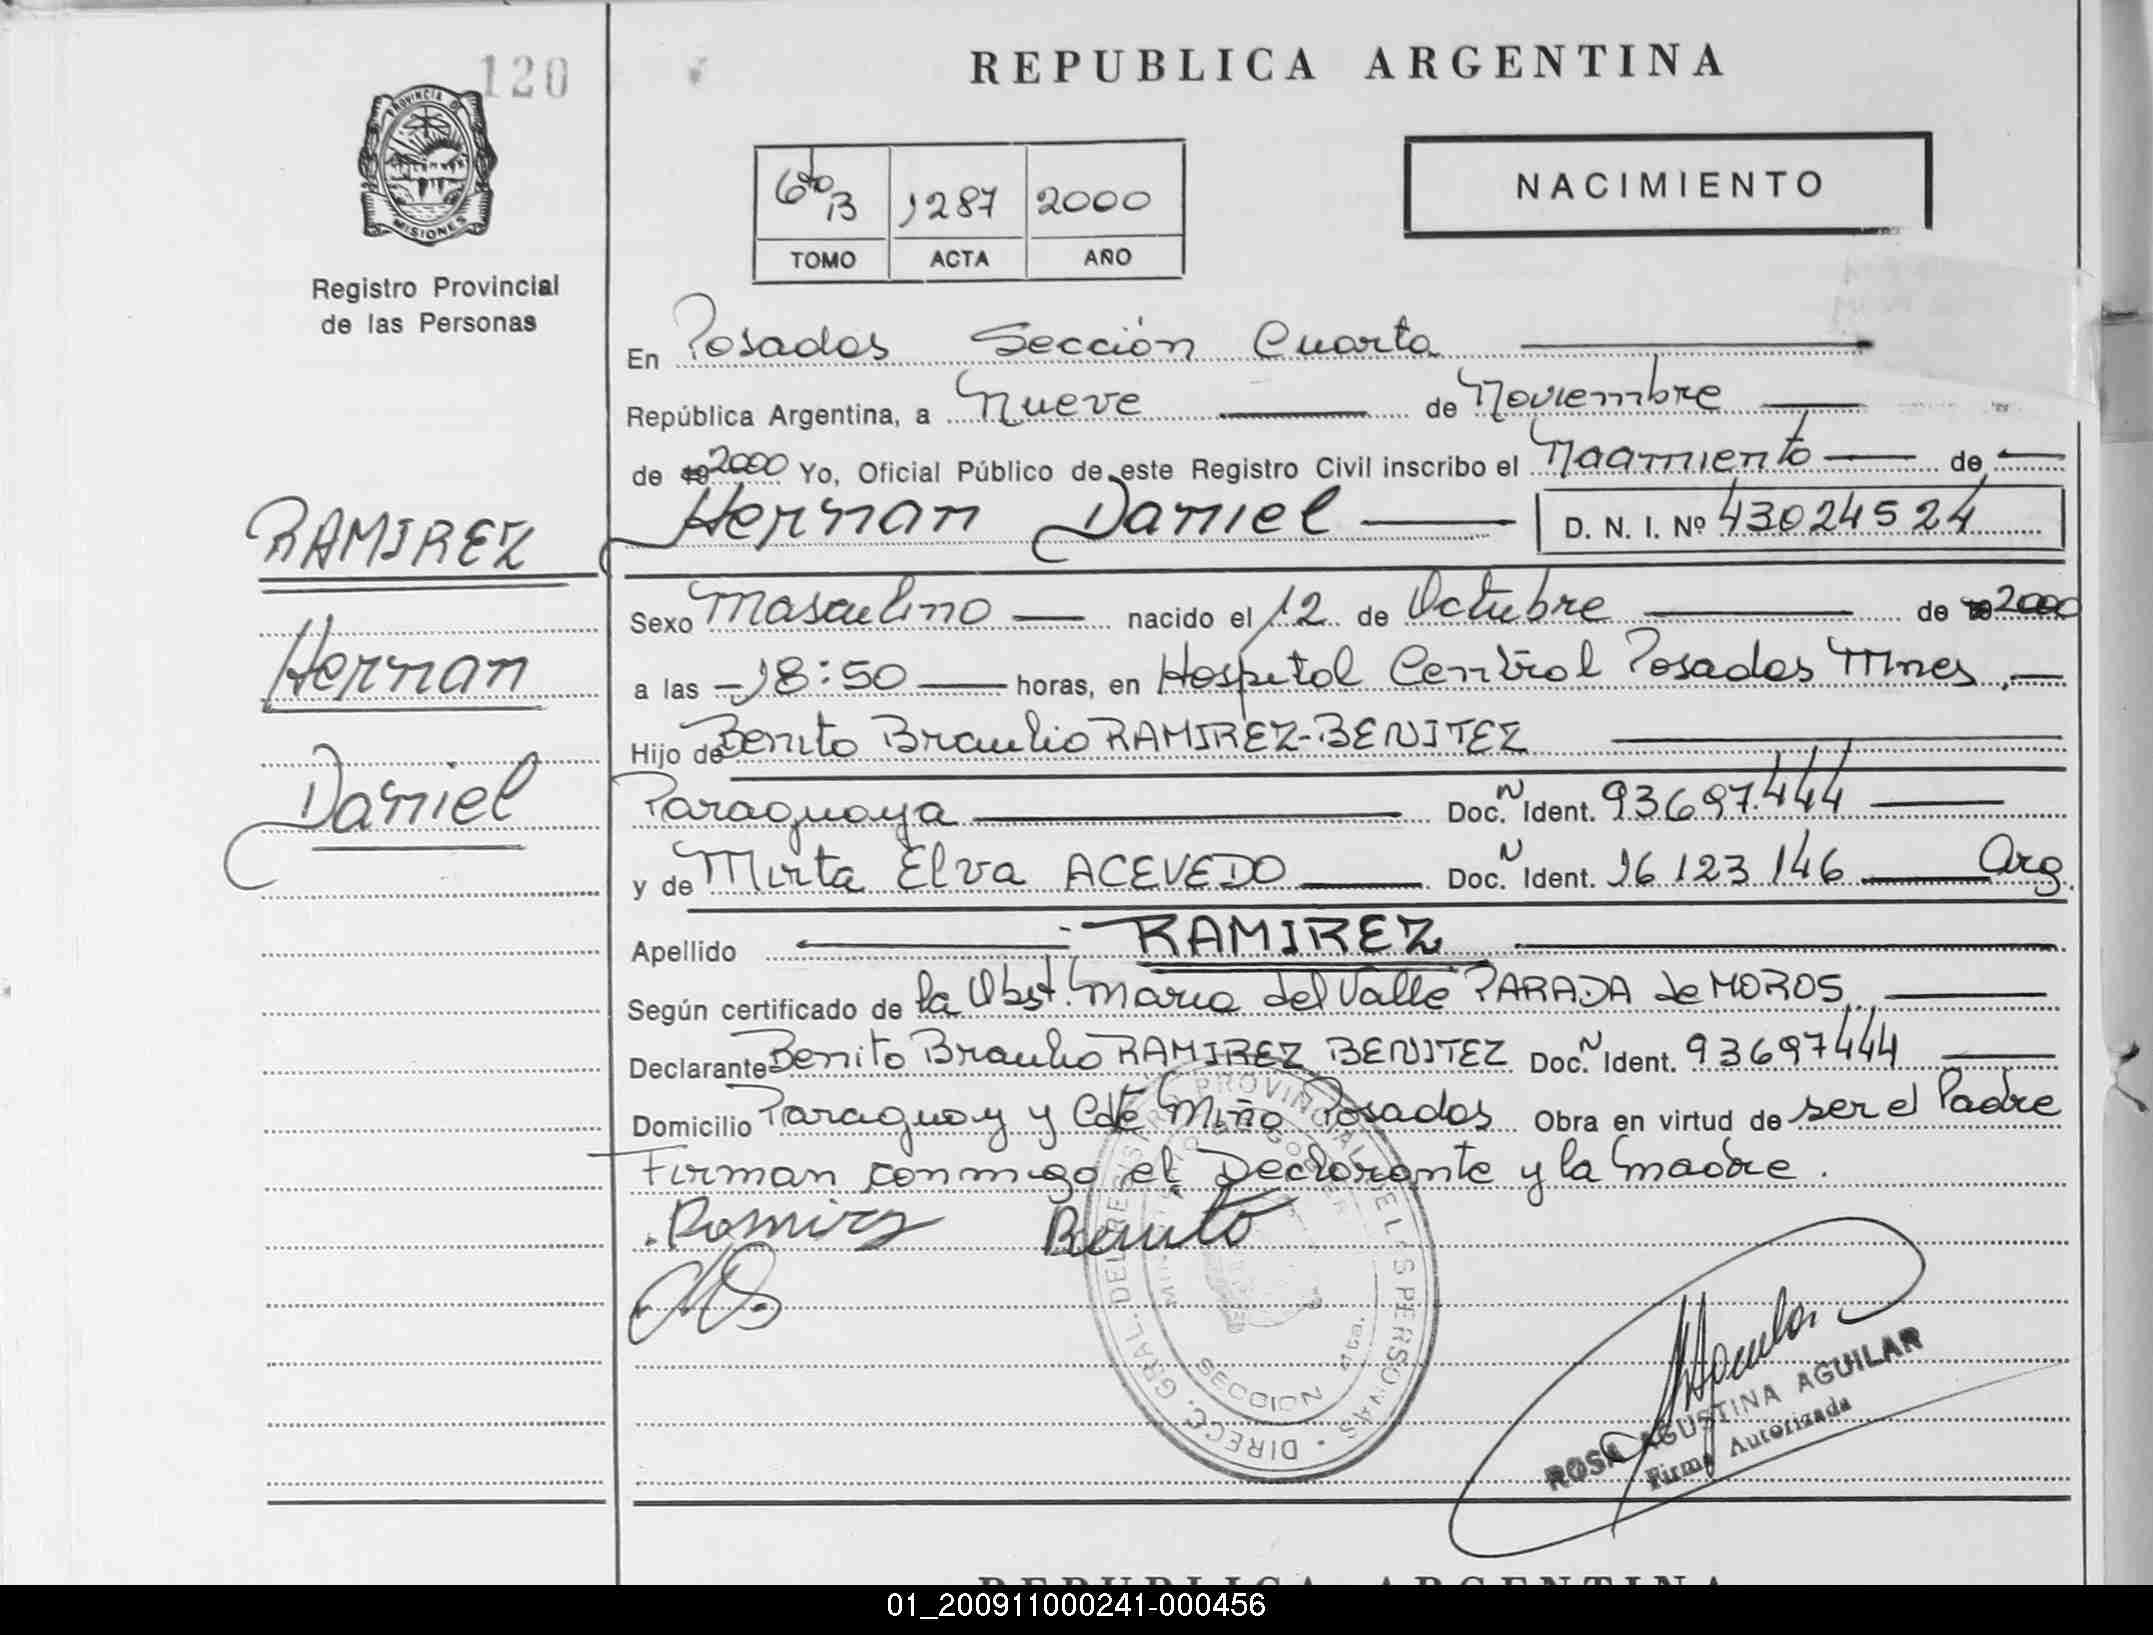 120
REPUBLICA ARGENTINA
PROVINCIA D
MISIONES
Registro Provincial
de las Personas
6to B 1287 2000
TOMO ACTA AÑO
NACIMIENTO
En Posadas Sección Cuarta
República Argentina, a Nueve de Noviembre
de 19 2000 Yo, Oficial Público de este Registro Civil inscribo el Nacimiento de
Hernan Daniel D. N. I. Nº 43024524
RAMIREZ
Hernan
Daniel
Sexo Masculino nacido el 12 de Octubre de 19 2000
a las 18:50 horas, en Hospital Central Posadas Mnes
Hijo de Benito Braulio RAMIREZ-BENITEZ
Paraguaya Doc. N Ident. 93697.444
y de Mirta Elva ACEVEDO Doc. N Ident. 16 123 146 Arg.
Apellido RAMIREZ
Según certificado de la Obst. Maria del Valle PARADA de MOROS
Declarante Benito Braulio RAMIREZ BENITEZ Doc. N Ident. 93697444
Domicilio Paraguay y Cdte Miño Posadas Obra en virtud de ser el Padre
Firman conmigo el Declarante y la Madre.
Ramirez Benito
DIRECC. GRAL. DEL REGISTRO PROVINCIAL DE LAS PERSONAS
SECCION 4ta.
ROSA AGUSTINA AGUILAR
Firma Autorizada
REPUBLICA ARGENTINA
01_200911000241-000456